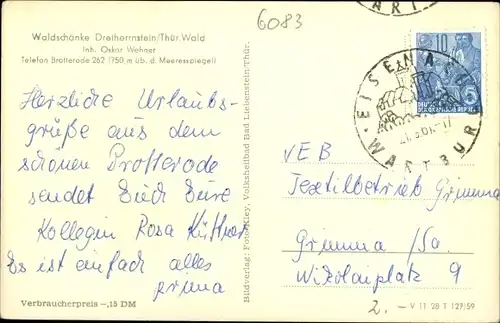 6083
Waldschänke Dreiherrnstein/Thür. Wald
Inh. Oskar Wehner
Telefon Brotterode 262 (750 m üb. d. Meeresspiegel)
Herzliche Urlaubs-
grüße aus dem
schönen Brotterode
sendet Euch Eure
Kollegin Rosa
Es ist einfach alles
prima
Verbraucherpreis -,15 DM
Bildverlag: Foto-Kley, Volksheilbad Bad Liebenstein/Thür.
10
5
EISENACH
WARTBURG
VEB
Textilbetrieb Grimma
Grimma /Sa.
Nikolaiplatz 9
2.-
V 11 28 T 127/59